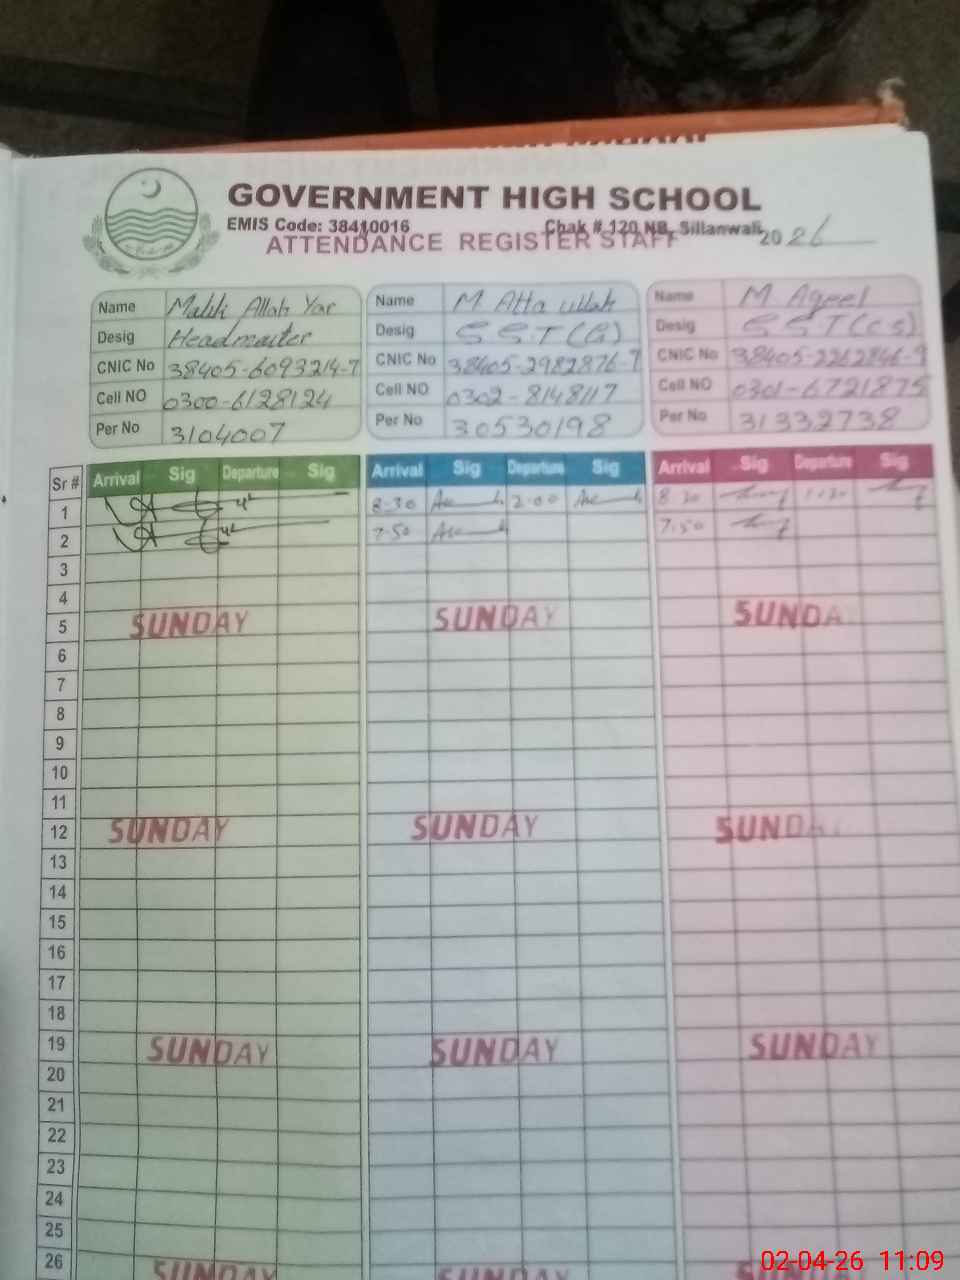 GOVERNMENT HIGH SCHOOL
EMIS Code: 38410016 Chak # 120 NB, Sillanwali
ATTENDANCE REGISTER STAFF 2026
Name Malik Allah Yar
Desig Headmaster
CNIC No 38405-6093214-7
Cell NO 0300-6128124
Per No 3104007
Name M Atta ullah
Desig S.S.T (G)
CNIC No 38405-2982876-7
Cell NO 0302-8148117
Per No 30530198
Name M Aqeel
Desig S S T (CS)
CNIC No 38405-2262846-9
Cell NO 0301-6721875
Per No 31332738
Sr # Arrival Sig Departure Sig Arrival Sig Departure Sig Arrival Sig Departure Sig
1 8-30 2-00 8 30 1-30
2 7-50 7.50
3
4
5 SUNDAY SUNDAY SUNDA
6
7
8
9
10
11
12 SUNDAY SUNDAY SUNDA
13
14
15
16
17
18
19 SUNDAY SUNDAY SUNDAY
20
21
22
23
24
25
26 SUNDAY SUNDAY
02-04-26 11:09